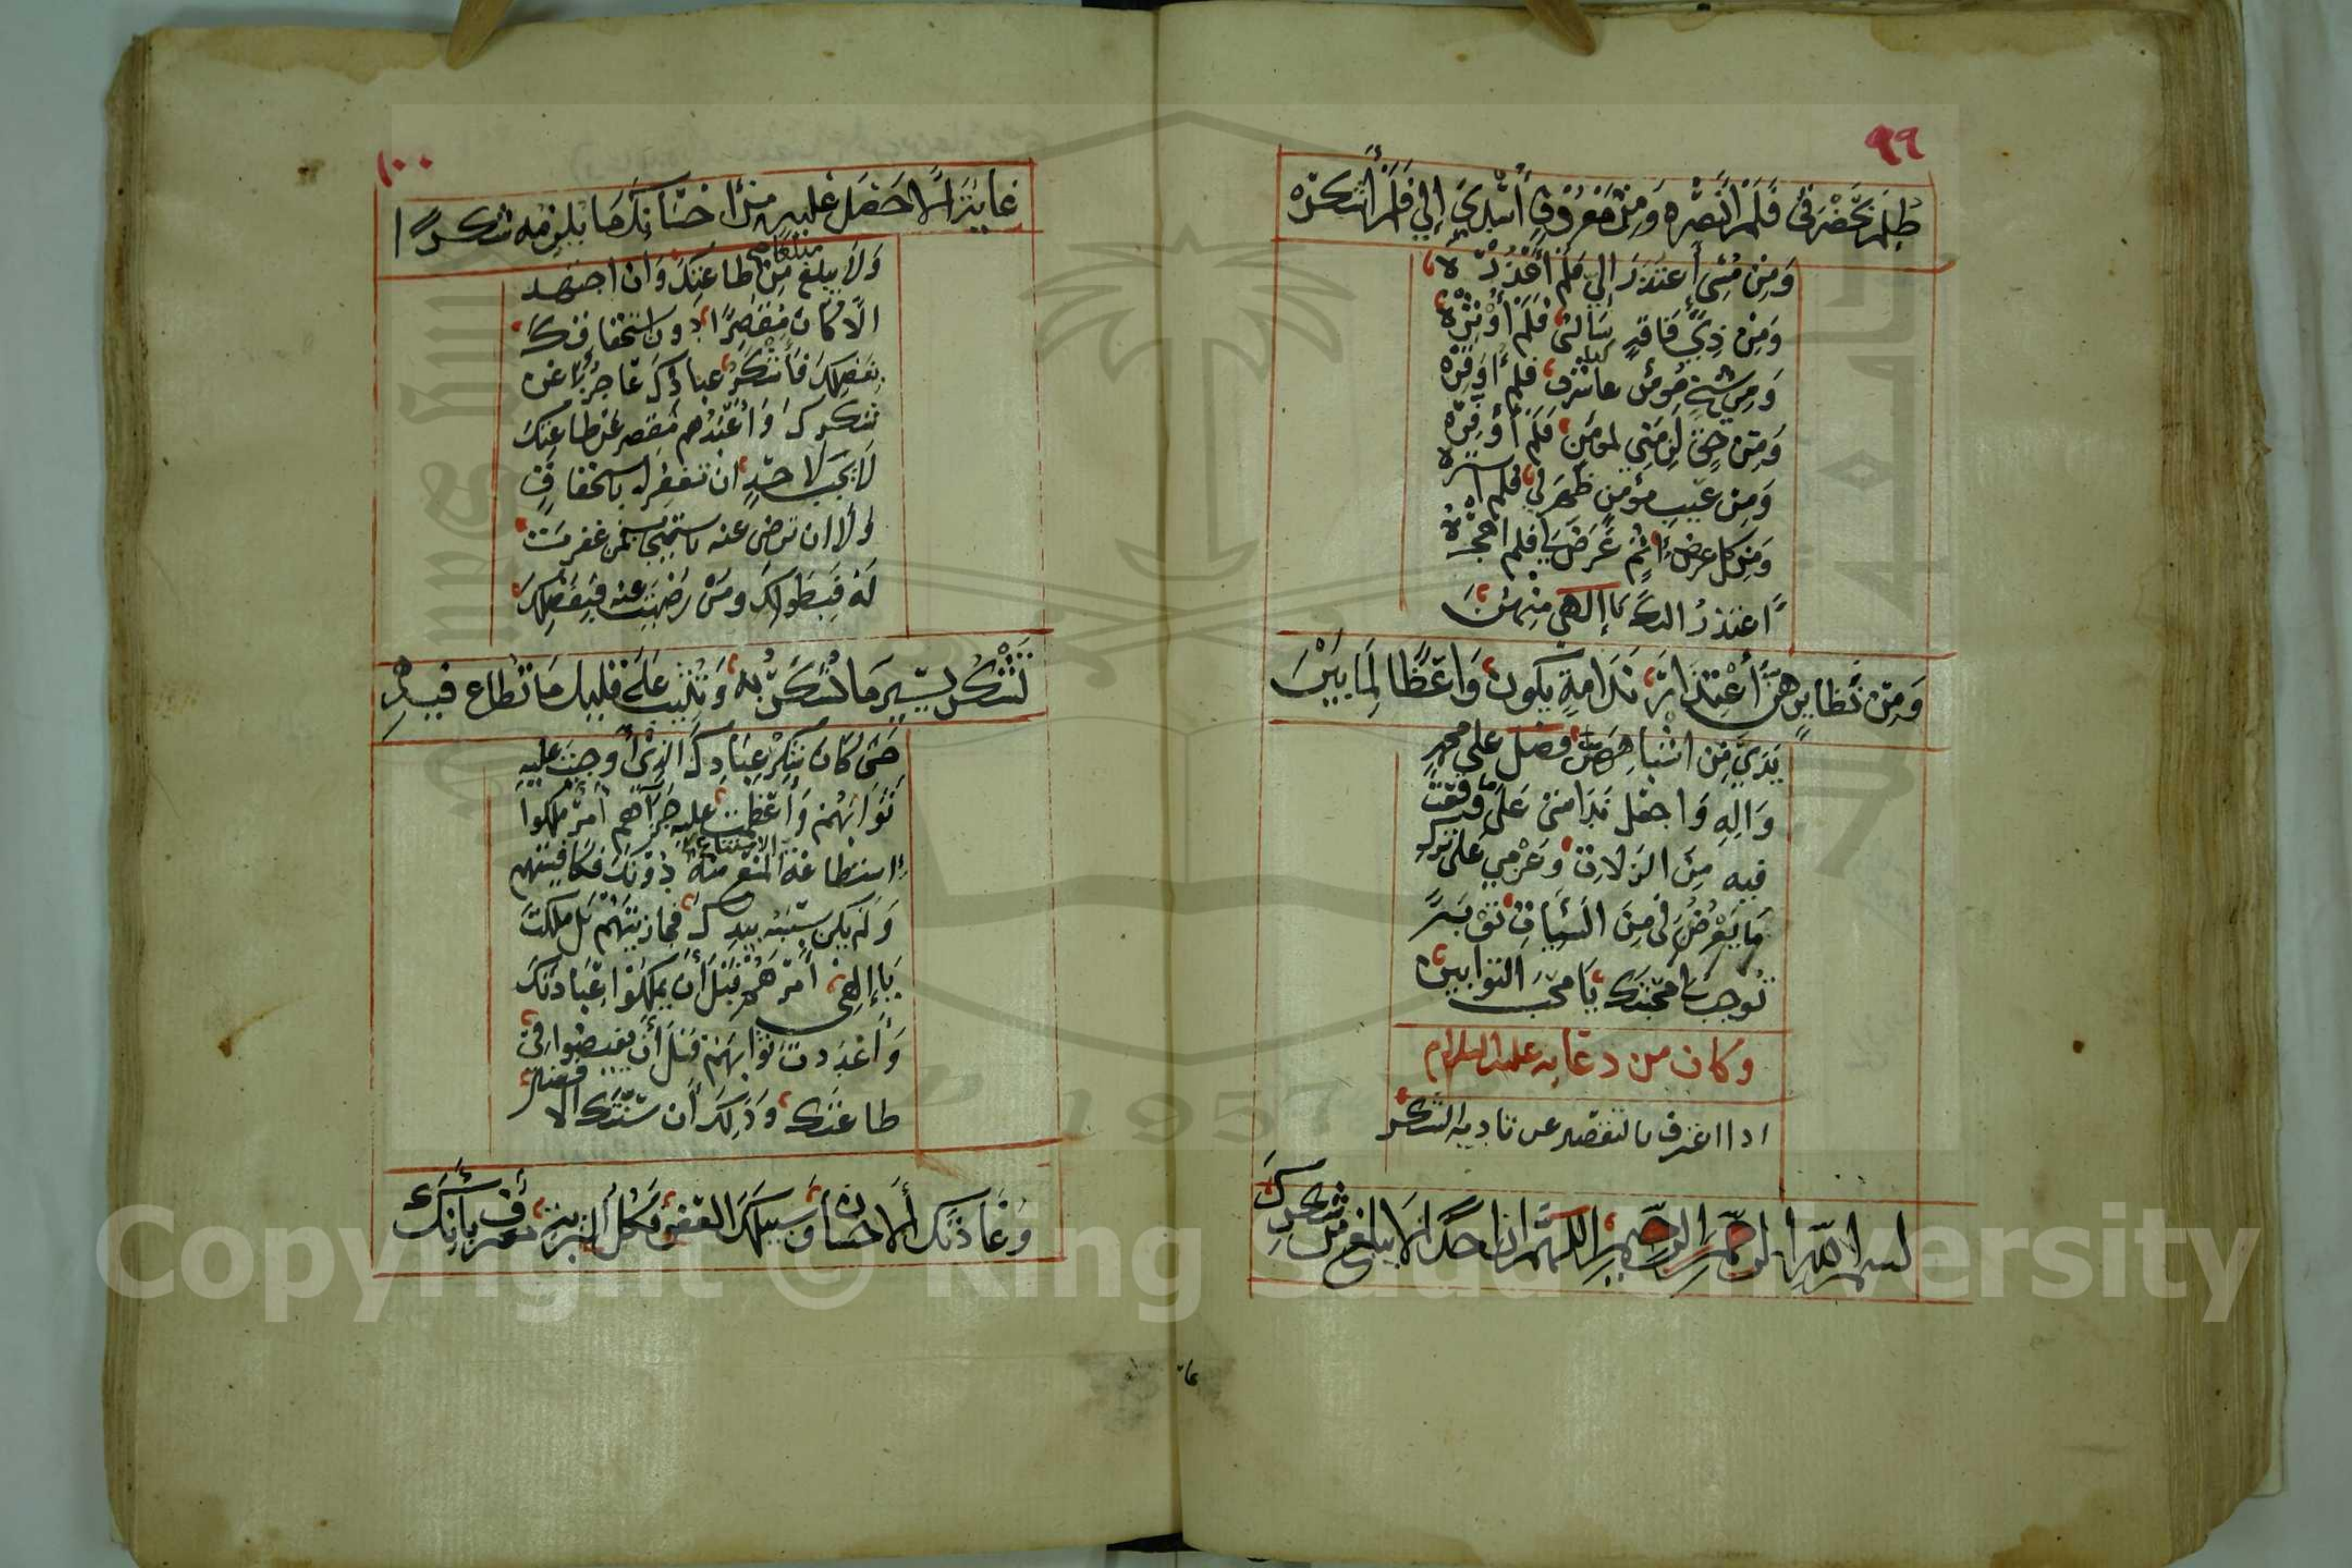 ٩٩
ظلم بحضرتي فلم انصره ومن معروف أسدي إلي فلم أشكره
ومن مسئ أعتذر إلي فلم أعذره
ومن ذي فاقة سالني فلم أوثره
ومن حق لزمني لمومن فلم أوفره
ومن عيب مؤمن ظهر لي فلم استره
ومن كل اثم عرض لي فلم اهجره
أعتذر اليك يا إلهي منهن
ومن نظايرهن أعتذار ندامة يكون واعظا لما بين
يدي من اشباههن فصل على محمد
واله واجعل ندامتي على ما وقعت
فيه من الزلات وعزمي على ترك
ما يعرض لي من السيات توبة
توجب لي محبتك يا محب التوابين
وكان من دعايه عليه السلام
اذا اعترف بالتقصير عن تادية الشكر
بسم الله الرحمن الرحيم اللهم ان احدا لا يبلغ من شكرك
١٠٠
غاية الا حصل عليه من احسانك ما يلزمه شكرا
ولا يبلغ مبلغا من طاعتك وان اجتهد
الا كان مقصرا دون استحقاقك
بفضلك فأشكر عبادك عاجز عن
شكرك وأعبدهم مقصر عن طاعتك
لا يجب لاحد ان تغفر له باستحقاقه
ولا ان ترضى عنه باستيجابه فمن غفرت
له فبطولك ومن رضيت عنه فبفضلك
تشكر يسير ما شكر به وتثيب على قليل ما تطاع فيه
حتى كان شكر عبادك الذي أوجبت عليه
ثوابهم وأعظمت عليه جزآهم أمر ملكوا
إستطاعة الامتناع منه دونك فكافيتهم
ولم يكن سببه بيدك فجازيتهم بل ملكت
يا إلهي أمرهم قبل أن يملكوا عبادتك
وأعددت ثوابهم قبل أن يفيضوا في
طاعتك وذلك أن سنتك الافضال
وعادتك الاحسان وسبيلك العفو فكل البرية معترفة بأنك
Copyright © King Saud University
1957